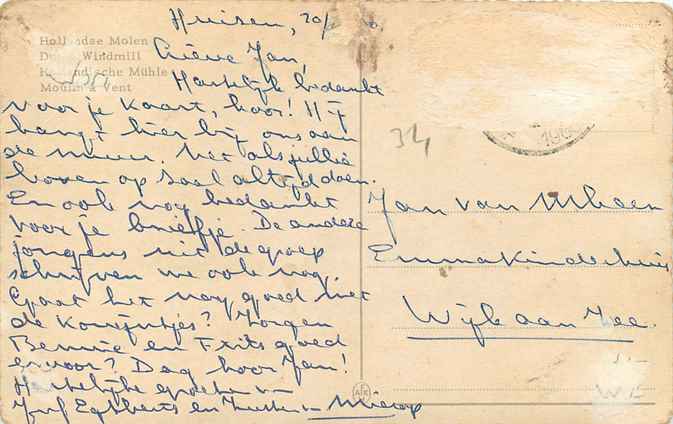 Hollandse Molen
Dutch Windmill
Holländische Mühle
Moulin à Vent
Huizen, 20/
Lieve Jan,
Hartelijk bedankt
voor je kaart, hoor! Hij
hangt hier bij ons aan
de muur. Net als jullie
boven op zaal altijd doen.
En ook nog bedankt
voor je briefje. De andere
jongens uit de groep
schrijven we ook nog.
Gaat het nog goed met
de konijntjes? Zorgen
Bennie en Frits goed
ervoor? Dag hoor Jan!
Hartelijke groeten van
Juf Egberts en Zuster
34
196
Jan van
Emmakinderhuis
Wijk aan Zee.